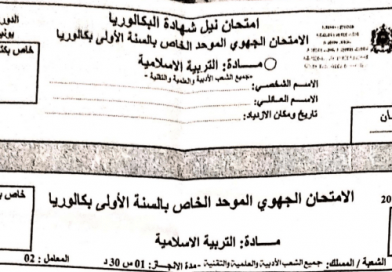 امتحان نيل شهادة البكالوريا
الدور
يوني
الامتحان الجهوي الموحد الخاص بالسنة الأولى بكالوريا
خاص بكت
مــادة: التربية الاسلامية
- جميع الشعب الأدبية والعلمية والتقنية -
الاسم الشخصي:
الاسم العائلي:
تاريخ ومكان الازدياد:
ان
خاص ب
الامتحان الجهوي الموحد الخاص بالسنة الأولى بكالوريا
20
مــــادة: التربية الاسلامية
الشعبة / المسلك: جميع الشعب الأدبية والعلمية والتقنية - مدة الانجـاز: 01 س 30 د
المعامل: 02